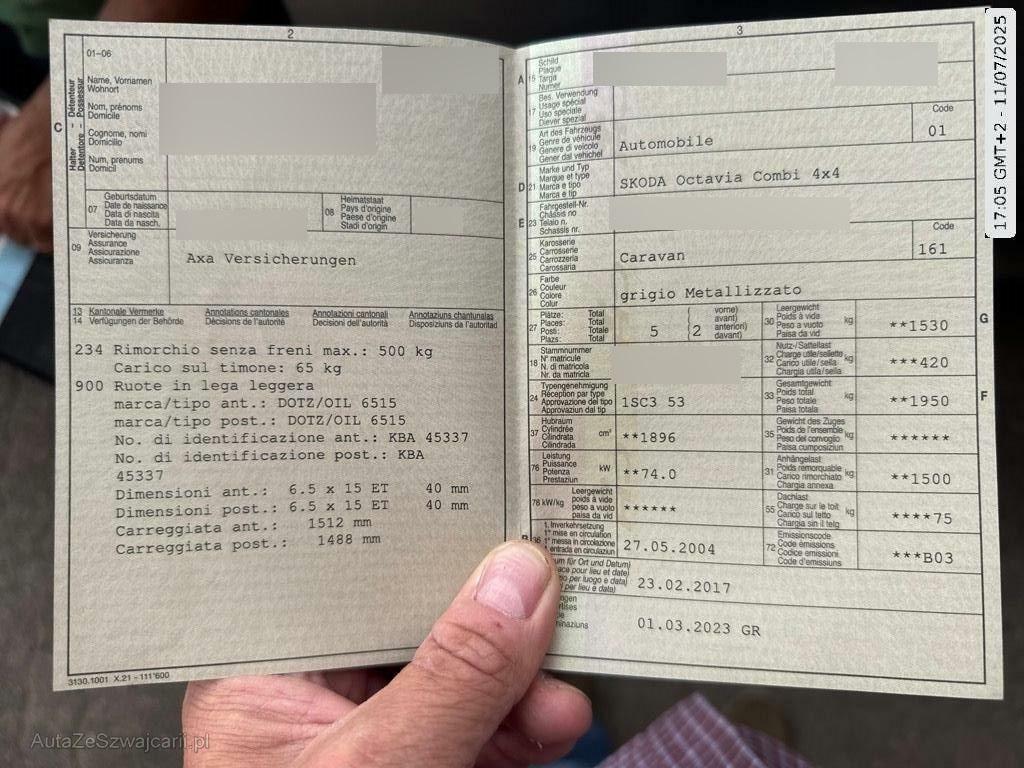 2
01-06
Halter - Détenteur
Detentore - Possessur
C
Name, Vornamen
Wohnort
Nom, prénoms
Domicile
Cognome, nomi
Domicilio
Num, prenums
Domicil
07
Geburtsdatum
Date de naissance
Data di nascita
Data da nasch.
08
Heimatstaat
Pays d'origine
Paese d'origine
Stadi d'origin
09
Versicherung
Assurance
Assicurazione
Assicuranza
Axa Versicherungen
13 Kantonale Vermerke Annotations cantonales Annotazioni cantonali Annotaziuns chantunalas
14 Verfügungen der Behörde Décisions de l'autorité Decisioni dell'autorità Disposiziuns da l'autoritad
234 Rimorchio senza freni max.: 500 kg
Carico sul timone: 65 kg
900 Ruote in lega leggera
marca/tipo ant.: DOTZ/OIL 6515
marca/tipo post.: DOTZ/OIL 6515
No. di identificazione ant.: KBA 45337
No. di identificazione post.: KBA
45337
Dimensioni ant.: 6.5 x 15 ET 40 mm
Dimensioni post.: 6.5 x 15 ET 40 mm
Carreggiata ant.: 1512 mm
Carreggiata post.: 1488 mm
3130.1001 X.21 - 111'600
3
A 15
Schild
Plaque
Targa
Numer
17
Bes. Verwendung
Usage spécial
Uso speciale
Diever spezial
19
Art des Fahrzeugs
Genre de véhicule
Genere di veicolo
Gener dal vehichel
Automobile
Code
01
D 21
Marke und Typ
Marque et type
Marca e tipo
Marca e tip
SKODA Octavia Combi 4x4
E 23
Fahrgestell-Nr.
Châssis no
Telaio n.
Schassis nr.
25
Karosserie
Carrosserie
Carrozzeria
Carossaria
Caravan
Code
161
26
Farbe
Couleur
Colore
Colur
grigio Metallizzato
27
Plätze: Total
Places: Total
Posti: Totale
Plazs: Total
5
( 2
vorne)
avant)
anteriori)
davant)
30
Leergewicht
Poids à vide
Peso a vuoto
Paisa da vid
kg
**1530
G
18
Stammnummer
N° matricule
N. di matricola
Nr. da matricla
32
Nutz-/Sattellast
Charge utile/sellette
Carico utile/sella
Chargia utila/sella
kg
***420
24
Typengenehmigung
Réception par type
Approvazione del tipo
Approvaziun dal tip
1SC3 53
33
Gesamtgewicht
Poids total
Peso totale
Paisa totala
kg
**1950
F
37
Hubraum
Cylindrée
Cilindrata
Cilindrada
cm³
**1896
35
Gewicht des Zuges
Poids de l'ensemble
Peso del convoglio
Paisa cumposiziun
kg
******
76
Leistung
Puissance
Potenza
Prestaziun
kW
**74.0
31
Anhängelast
Poids remorquable
Carico rimorchiato
Chargia annexa
kg
**1500
78 kW/kg
Leergewicht
poids à vide
peso a vuoto
paisa da vid
******
55
Dachlast
Charge sur le toit
Carico sul tetto
Chargia sin il tetg
kg
****75
B 36
1. Inverkehrsetzung
1re mise en circulation
1a messa in circolazione
entrada en circulaziun
27.05.2004
72
Emissionscode
Code émissions
Codice emissioni
Code d'emissiuns
***B03
um für Ort und Datum)
ace pour lieu et date)
io per luogo e data)
per lieu e data)
23.02.2017
01.03.2023 GR
17:05 GMT+2 - 11/07/2025
AutaZeSzwajcarii.pl